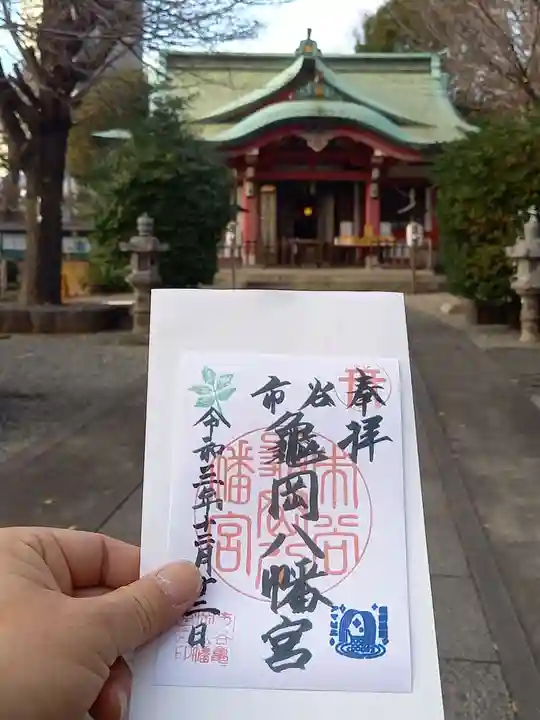 奉拝
市谷
亀岡八幡宮
令和三年十二月廿二日
市谷亀岡八幡宮